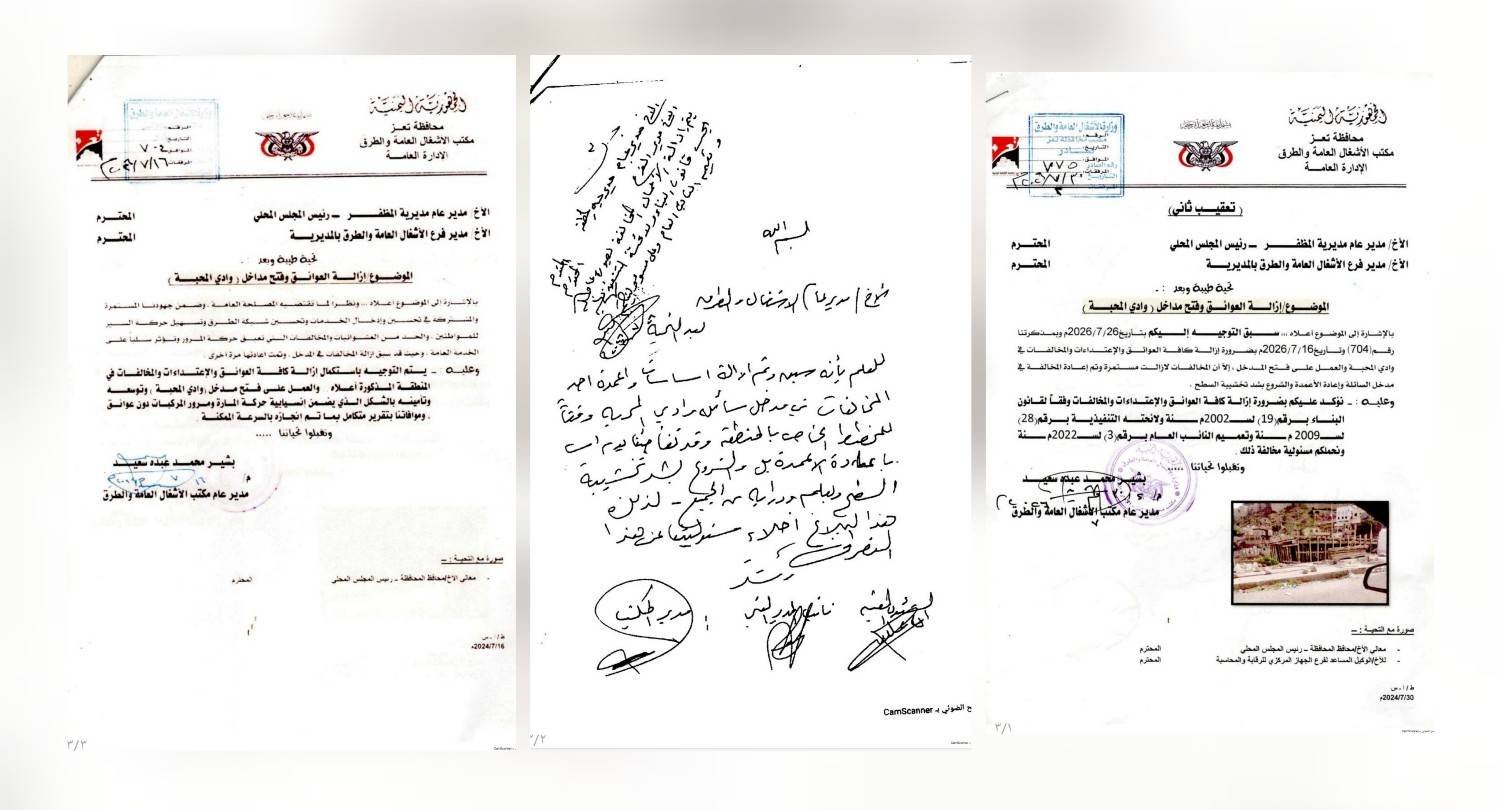 الجمهورية اليمنية
محافظة تعز
مكتب الأشغال العامة والطرق
الإدارة العامـــة
وزارة الأشغال العامة والطرق
مكتب محافظة تعز
صادر
٧٧٥
( تعقيـب ثاني )
الأخ/ مدير عام مديرية المظفـــر ــ رئيس المجلس المحلي المحترم
الأخ/ مدير فرع الأشغال العامة والطرق بالمديريـة المحترم
تحية طيبة وبعد :ـ
الموضوع/إزالـة العوائـق وفتح مداخل ( وادي المحبـة )
بالإشارة إلى الموضوع أعلاه ... سبـق التوجيـه إليـكم بتاريخ 2026/7/26م وبمذكرتنا
رقم(704) وتاريخ2026/7/16م بضرورة إزالة كافة العوائق والإعتداءات والمخالفات في
وادي المحبة والعمل على فتح المدخل , إلا أن المخالفات لازالت مستمرة وتم إعادة المخالفة في
مدخل السائلة وإعادة الأعمدة والشروع بشد تخشيبة السطح .
وعليه : ـ نؤكد عليكم بضرورة إزالة كافة العوائق والإعتداءات والمخالفات وفقـاً لقانون
البناء برقم(19) لســـ2002م سنة ولائحته التنفيذية برقم(28)
لســـ2009م سنة وتعميم النائب العام برقم(3) لســـ2022م سنة
ونحملكم مسئولية مخالفة ذلك .
وتقبلوا تحياتنا .....
بشير محمد عبده سعيد
م/
مدير عام مكتب الأشغال العامة والطرق
صورة مع التحيـة : ــ
- معالي الأخ/محافظ المحافظة ــ رئيس المجلس المحلي المحترم
- للأخ/الوكيل المساعد لفرع الجهاز المركزي للرقابة والمحاسبة المحترم
ط / أ ـ س
2024/7/30م
٣/١
بسم الله
الأخ / مدير عام الاشغال والطرق
بعد التحية
للعلم بأنه سبق وتم ازالة اساسات واعمدة احد
المخالفات في مدخل سائلة وادي المحبة وفقاً
للمخطط الخاص بالمنطقة وقد تفاجئنا اليوم
باعادة الاعمدة بل والشروع بشد تخشيبة
السطح وبعلم ودراية من الجميع - لذلك
هذا البلاغ اخلاء مسئوليتنا عن هذا
التصرف
مدير المكتب
CamScanner
٣/٢
الجمهورية اليمنية
محافظة تعز
مكتب الأشغال العامة والطرق
الإدارة العامـــة
وزارة الأشغال العامة والطرق
٧٠٤
الأخ/ مدير عام مديرية المظفـــر ــ رئيس المجلس المحلي المحترم
الأخ/ مدير فرع الأشغال العامة والطرق بالمديريـة المحترم
تحية طيبة وبعد :ـ
الموضوع/ إزالـة العوائـق وفتح مداخل ( وادي المحبـة )
بالإشارة إلى الموضوع أعلاه ... ونظراً لما تقتضيه المصلحة العامة , وضمن جهودنـا المستمرة
والمشتركة في تحسين وإدخال الخدمات وتحسين شبكة الطرق وتسهيل حركة السير
للمواطنين , والحد من العشوائيات والمخالفات التي تعيق حركة المرور وتؤثر سلباً على
الخدمة العامة , وحيث قد سبق ازالة المخالفات في المدخل , وتمت اعادتها مرة أخرى .
وعليه : ـ يـتم التوجيه باستكمال إزالة كافـة العوائق والإعتداءات والمخالفات في
المنطقة المذكورة أعلاه والعمل على فتح مدخل (وادي المحبة) وتوسعه
وتأمينه بالشكل الذي يضمن انسيابية حركة المارة ومرور المركبات دون عوائق
, وموافاتنا بتقرير متكامل بما تم انجازه بالسرعة الممكنة .
وتقبلوا تحياتنا .....
بشير محمد عبده سعيد
م/
مدير عام مكتب الأشغال العامة والطرق
صورة مع التحيـة : ــ
- معالي الأخ/محافظ المحافظة ــ رئيس المجلس المحلي المحترم
ط / أ ـ س
2024/7/16م
٣/٣